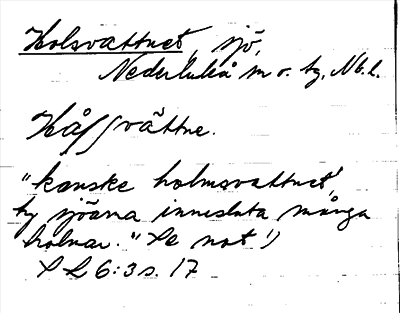 Holsvattnet, sjö,
Nederluleå sn o. tg, Nb. l.
Hålsvättne.
"kanske holmsvattnet',
ty sjöarna innesluta många
holmar." (Se not!)
S L 6:3 s. 17